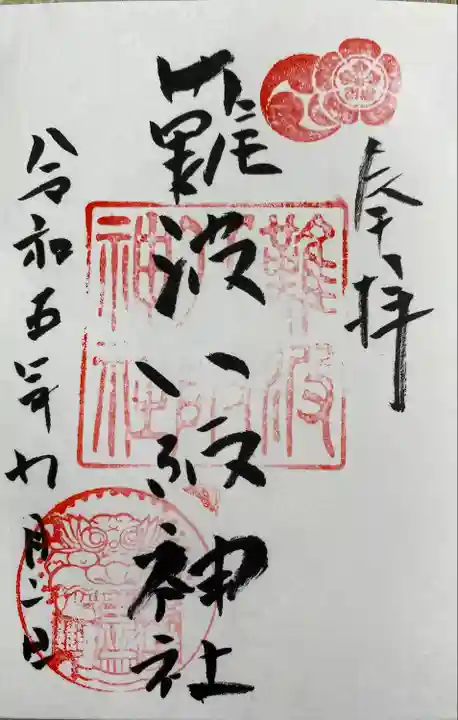 奉拝
難波八阪神社
難波
八阪
神社
令和五年九月日